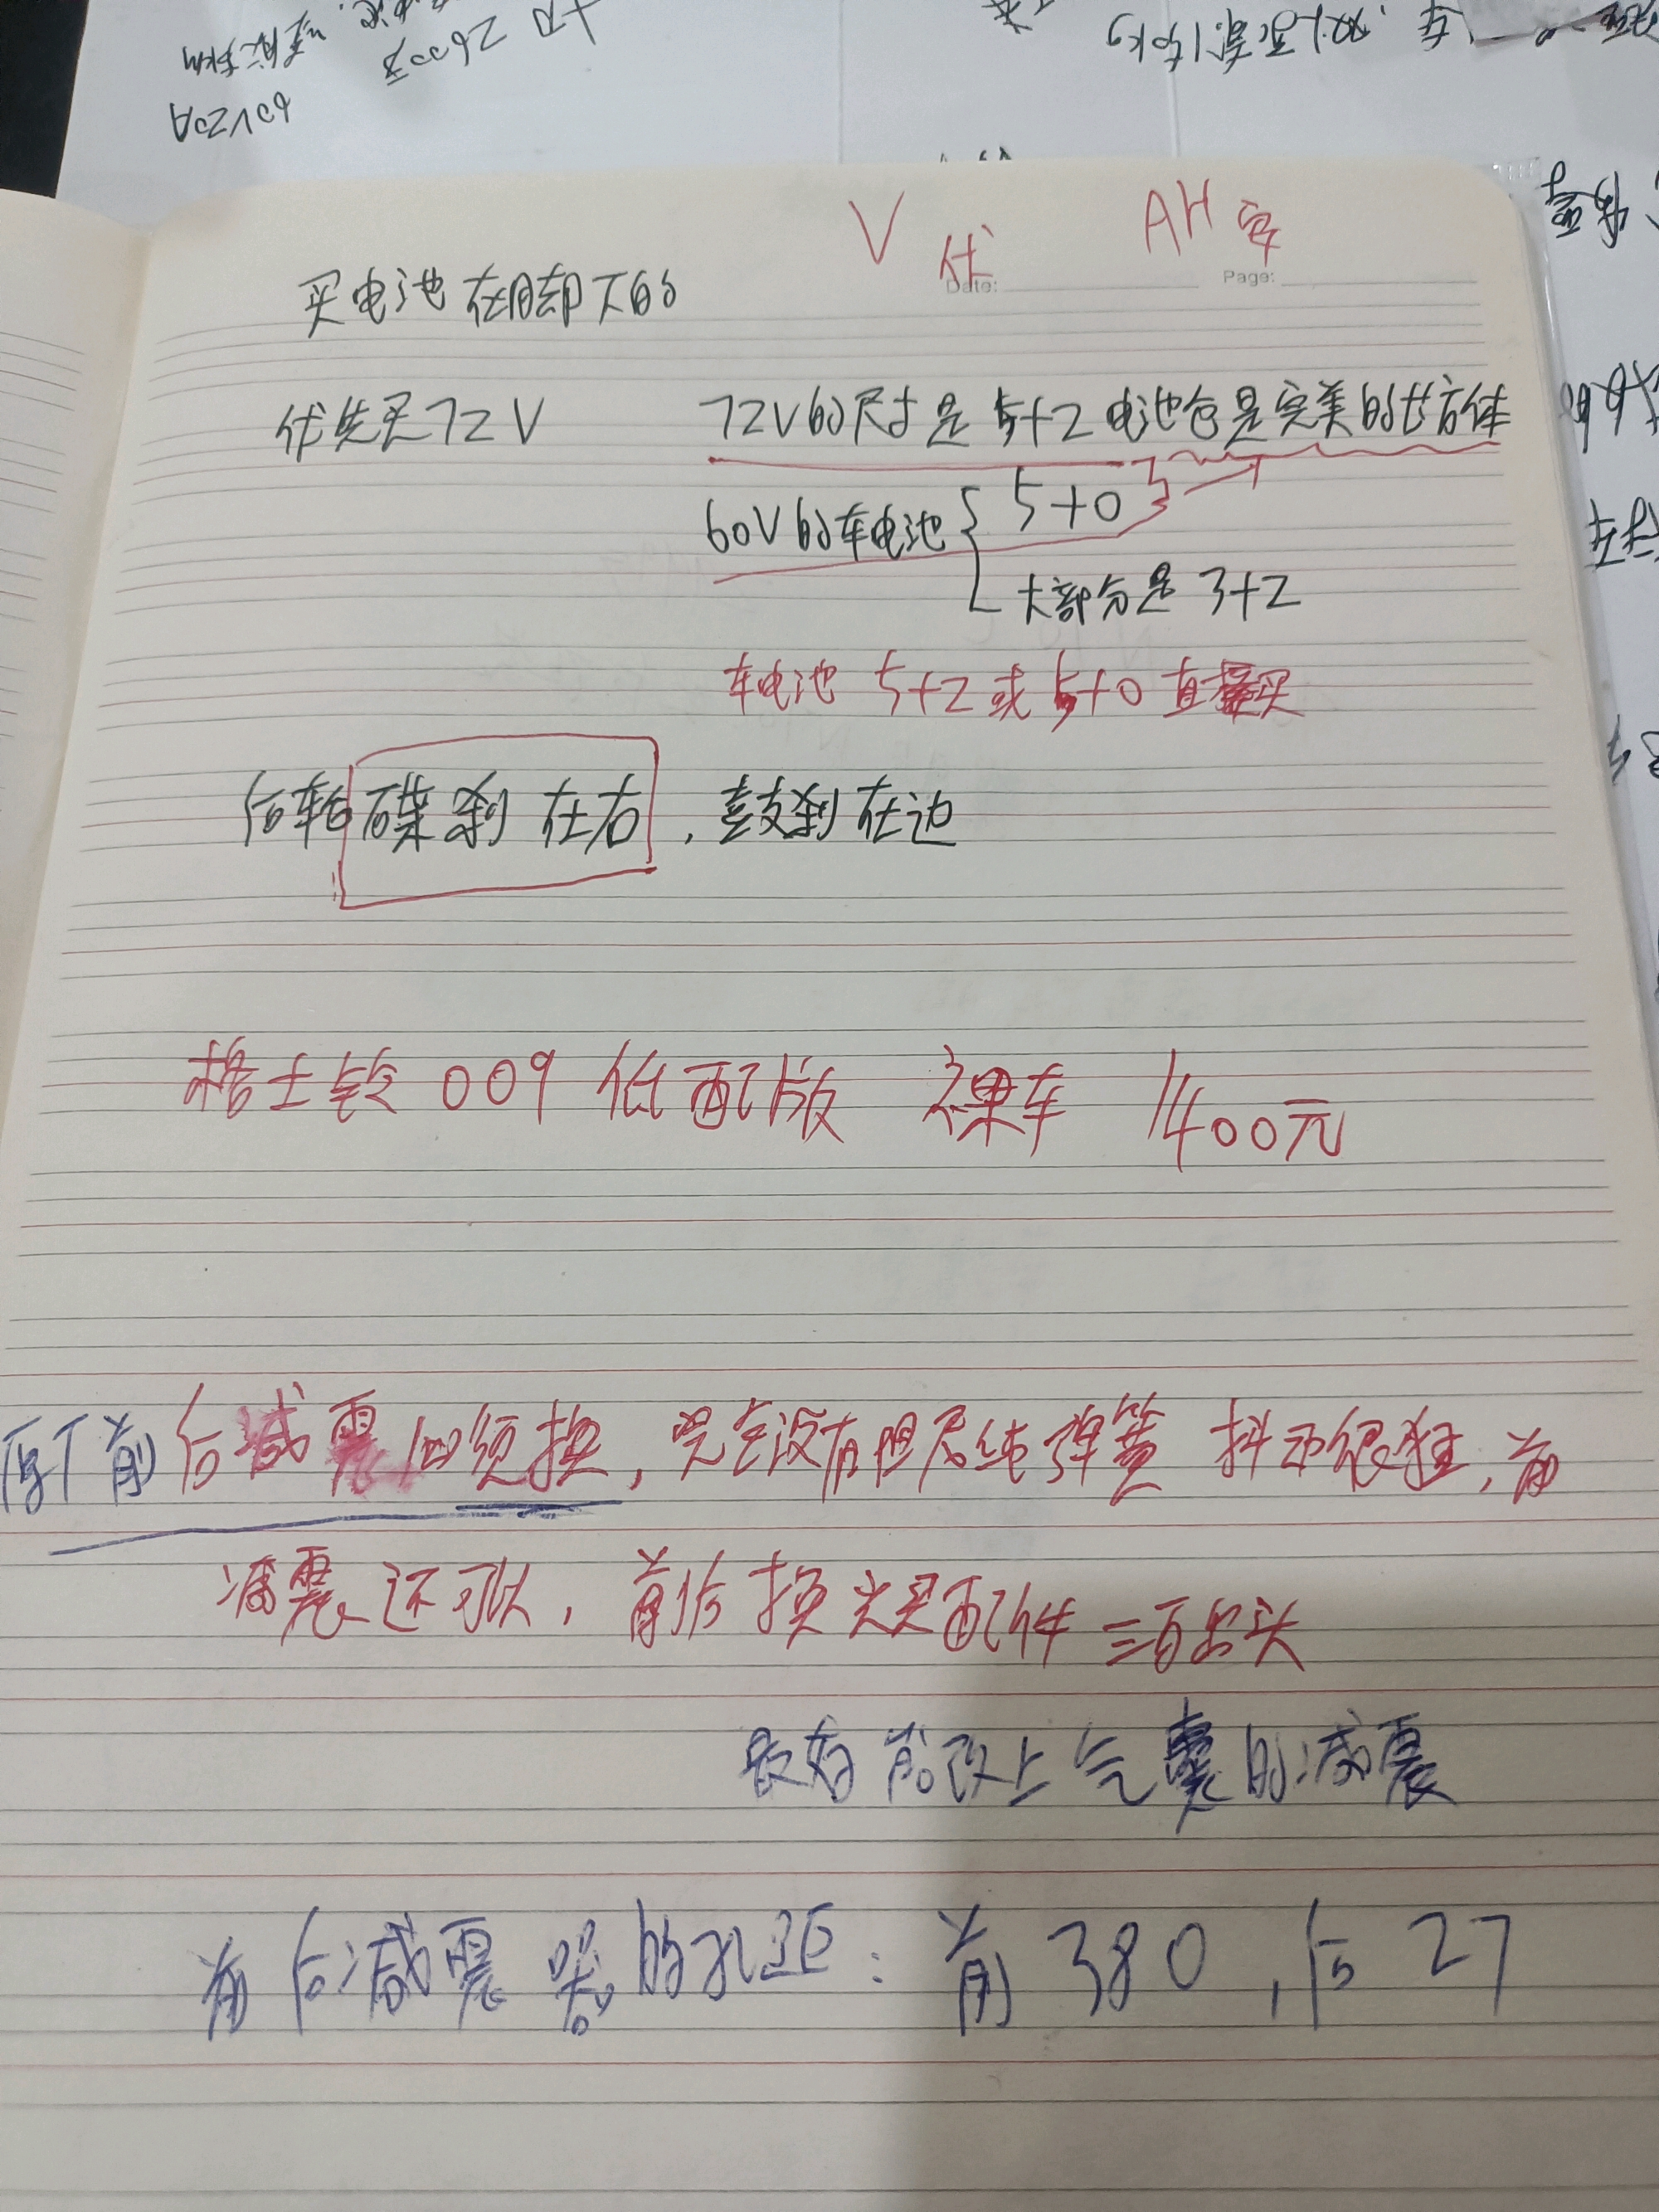 60V20A
V 伏 AH 安
Date: Page:
买电池在脚下的
优先买72V 72V的尺寸是5+2电池仓是完美的长方体
60V的车电池 { 5+0 }
大部分是3+2
车电池 5+2或5+0直接买
后轮碟刹在右,鼓刹在边
格士铃009低配版 裸车 1400元
原厂前后减震必须换,完全没有阻尼纯弹簧 抖动很狂,前
减震还可以,前后换光买配件三百出头
最好前改上气囊的减震
前后减震器的孔距:前380,后27